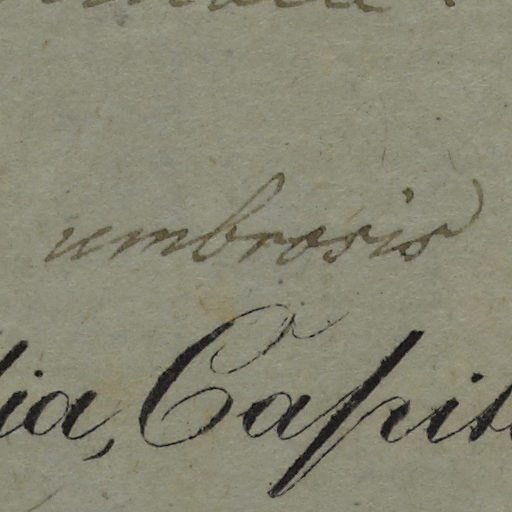 umbrosis
ia, Capit